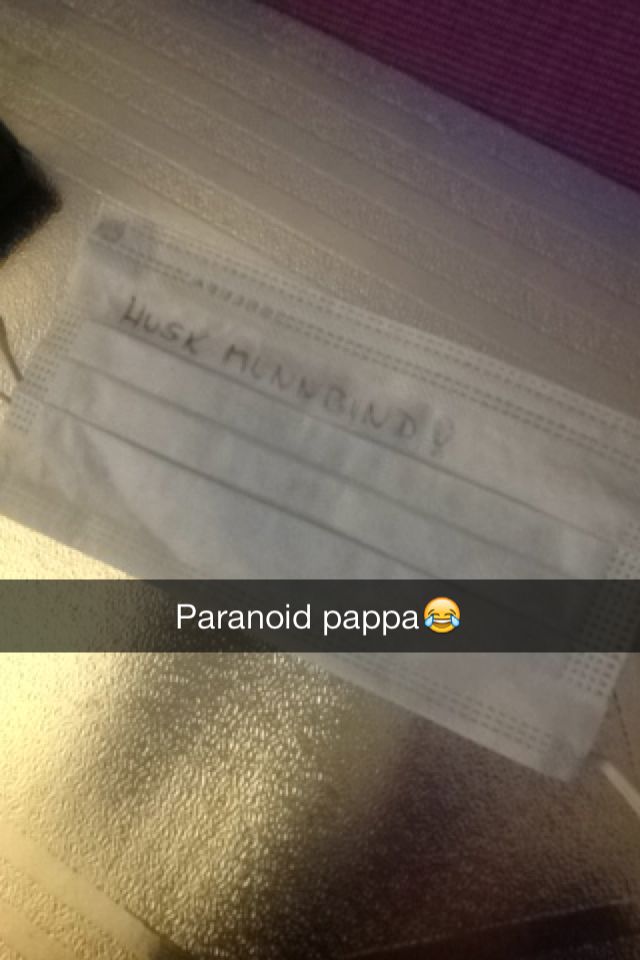 HUSK MUNNBIND!
Paranoid pappa😂